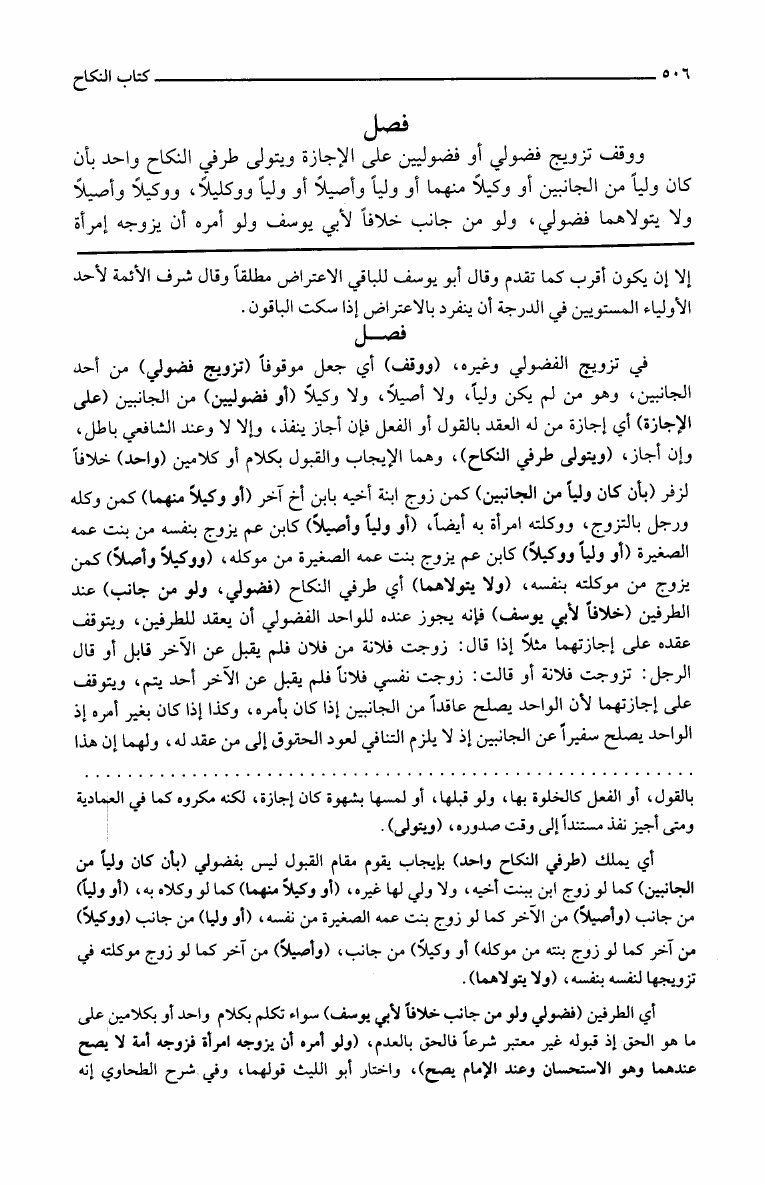 ٥٠٦ كتاب النكاح
فصل
ووقف تزويج فضولي أو فضوليين على الإجازة ويتولى طرفي النكاح واحد بأن
كان ولياً من الجانبين أو وكيلاً منهما أو ولياً وأصيلاً أو ولياً ووكليلاً، ووكيلاً وأصيلاً
ولا يتولاهما فضولي، ولو من جانب خلافاً لأبي يوسف ولو أمره أن يزوجه إمرأة
إلا إن يكون أقرب كما تقدم وقال أبو يوسف للباقي الاعتراض مطلقاً وقال شرف الأئمة لأحد
الأولياء المستويين في الدرجة أن ينفرد بالاعتراض إذا سكت الباقون.
فصل
في تزويج الفضولي وغيره، (ووقف) أي جعل موقوفاً (تزويج فضولي) من أحد
الجانبين، وهو من لم يكن ولياً، ولا أصيلاً، ولا وكيلاً (أو فضوليين) من الجانبين (على
الإجازة) أي إجازة من له العقد بالقول أو الفعل فإن أجاز ينفذ، وإلا لا وعند الشافعي باطل،
وإن أجاز، (ويتولى طرفي النكاح)، وهما الإيجاب والقبول بكلام أو كلامين (واحد) خلافاً
لزفر (بأن كان ولياً من الجانبين) كمن زوج ابنة أخيه بابن أخ آخر (أو وكيلاً منهما) كمن وكله
ورجل بالتزوج، ووكلته امرأة به أيضاً، (أو ولياً وأصيلاً) كابن عم يزوج بنفسه من بنت عمه
الصغيرة (أو ولياً ووكيلاً) كابن عم يزوج بنت عمه الصغيرة من موكله، (ووكيلاً وأصلاً) كمن
يزوج من موكلته بنفسه، (ولا يتولاهما) أي طرفي النكاح (فضولي، ولو من جانب) عند
الطرفين (خلافاً لأبي يوسف) فإنه يجوز عنده للواحد الفضولي أن يعقد للطرفين، ويتوقف
عقده على إجازتهما مثلاً إذا قال: زوجت فلانة من فلان فلم يقبل عن الآخر قابل أو قال
الرجل: تزوجت فلانة أو قالت: زوجت نفسي فلاناً فلم يقبل عن الآخر أحد يتم، ويتوقف
على إجازتهما لأن الواحد يصلح عاقداً من الجانبين إذا كان بأمره، وكذا إذا كان بغير أمره إذ
الواحد يصلح سفيراً عن الجانبين إذ لا يلزم التنافي لعود الحقوق إلى من عقد له، ولهما إن هذا
بالقول، أو الفعل كالخلوة بها، ولو قبلها، أو لمسها بشهوة كان إجازة، لكنه مكروه كما في العمادية
ومتى أجيز نفذ مستنداً إلى وقت صدوره، (ويتولى).
أي يملك (طرفي النكاح واحد) بإيجاب يقوم مقام القبول ليس بفضولي (بأن كان ولياً من
الجانبين) كما لو زوج ابن ببنت أخيه، ولا ولي لها غيره، (أو وكيلاً منهما) كما لو وكلاه به، (أو ولياً)
من جانب (وأصيلاً) من الآخر كما لو زوج بنت عمه الصغيرة من نفسه، (أو وليا) من جانب (ووكيلاً)
من آخر كما لو زوج بنته من موكله) أو وكيلاً) من جانب، (وأصيلاً) من آخر كما لو زوج موكلته في
تزويجها لنفسه بنفسه، (ولا يتولاهما).
أي الطرفين (فضولي ولو من جانب خلافاً لأبي يوسف) سواء تكلم بكلام واحد أو بكلامين على
ما هو الحق إذ قبوله غير معتبر شرعاً فالحق بالعدم، (ولو أمره أن يزوجه امرأة فزوجه أمة لا يصح
عندهما وهو الاستحسان وعند الإمام يصح)، واختار أبو الليث قولهما، وفي شرح الطحاوي إنه